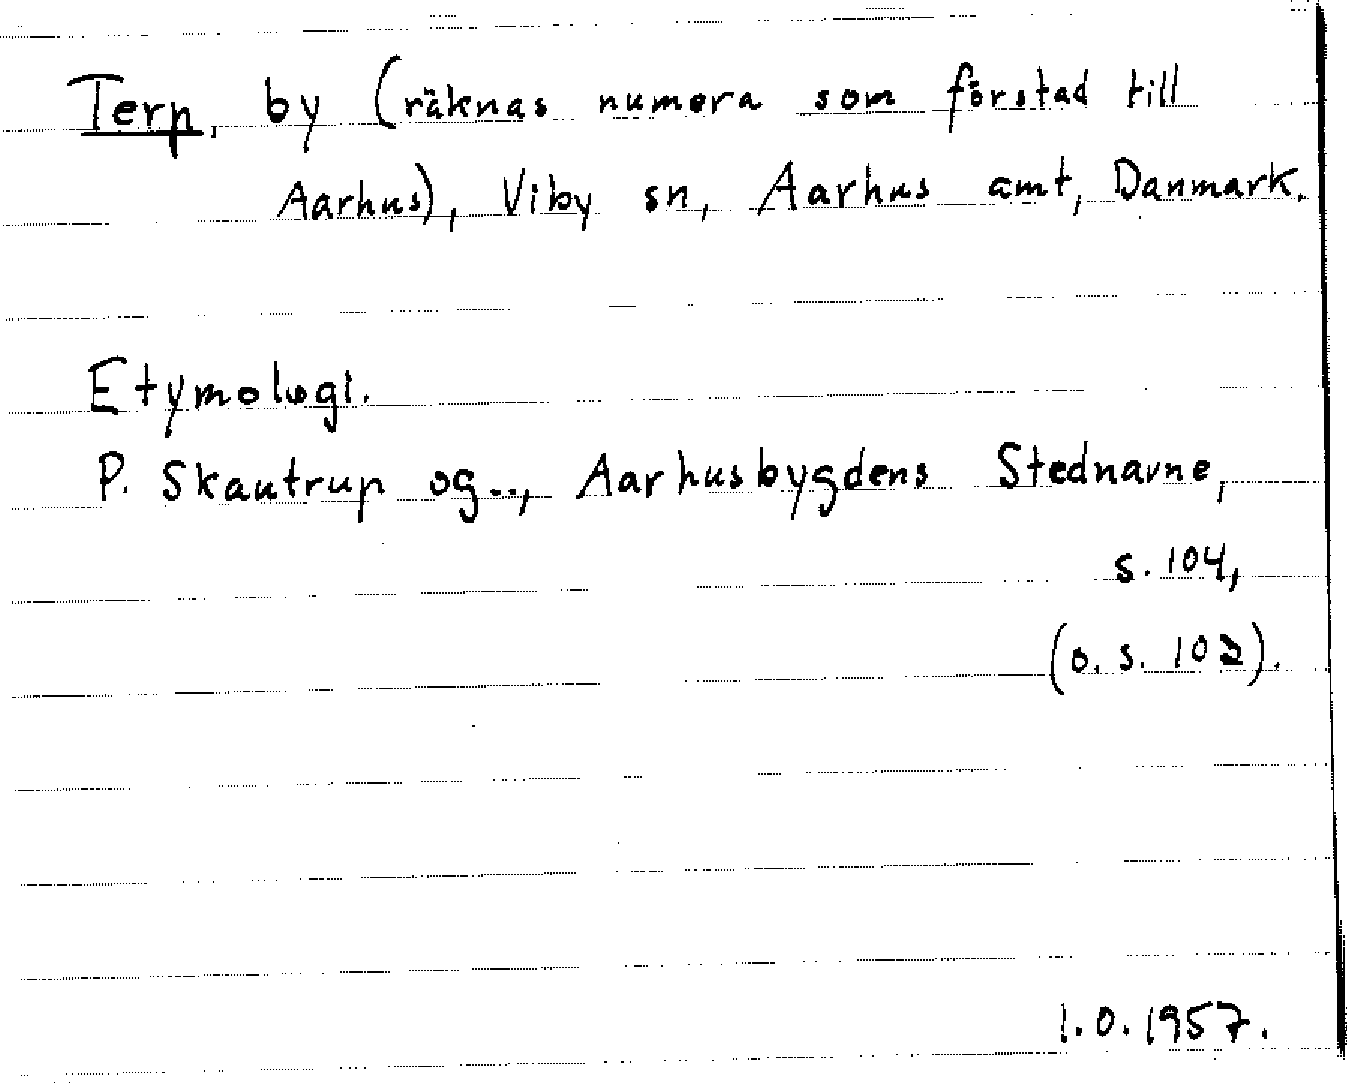 Terp, by (räknas numera som förstad till
Aarhus), Viby sn, Aarhus amt, Danmark.
Etymologi.
P. Skautrup og.., Aarhusbygdens Stednavne,
s. 104,
(o. s. 102).
1.0.1957.